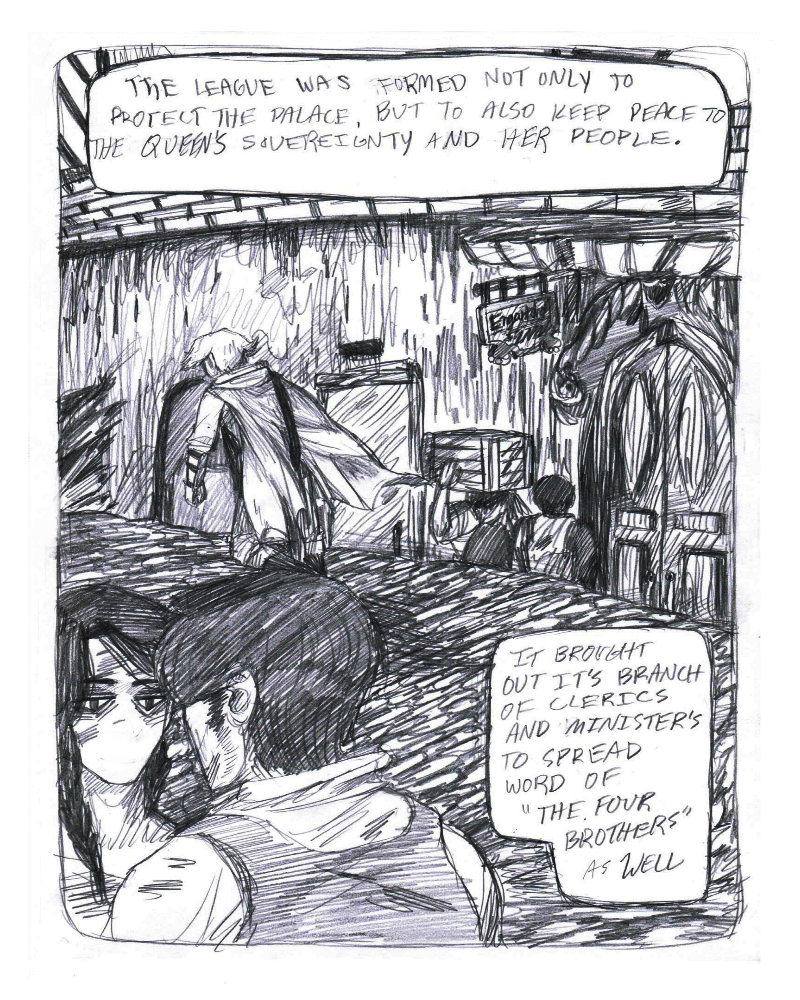 THE LEAGUE WAS FORMED NOT ONLY TO
PROTECT THE PALACE, BUT TO ALSO KEEP PEACE TO
THE QUEEN'S SOVEREIGNTY AND HER PEOPLE.
IT BROUGHT
OUT IT'S BRANCH
OF CLERICS
AND MINISTER'S
TO SPREAD
WORD OF
"THE FOUR
BROTHERS"
AS WELL